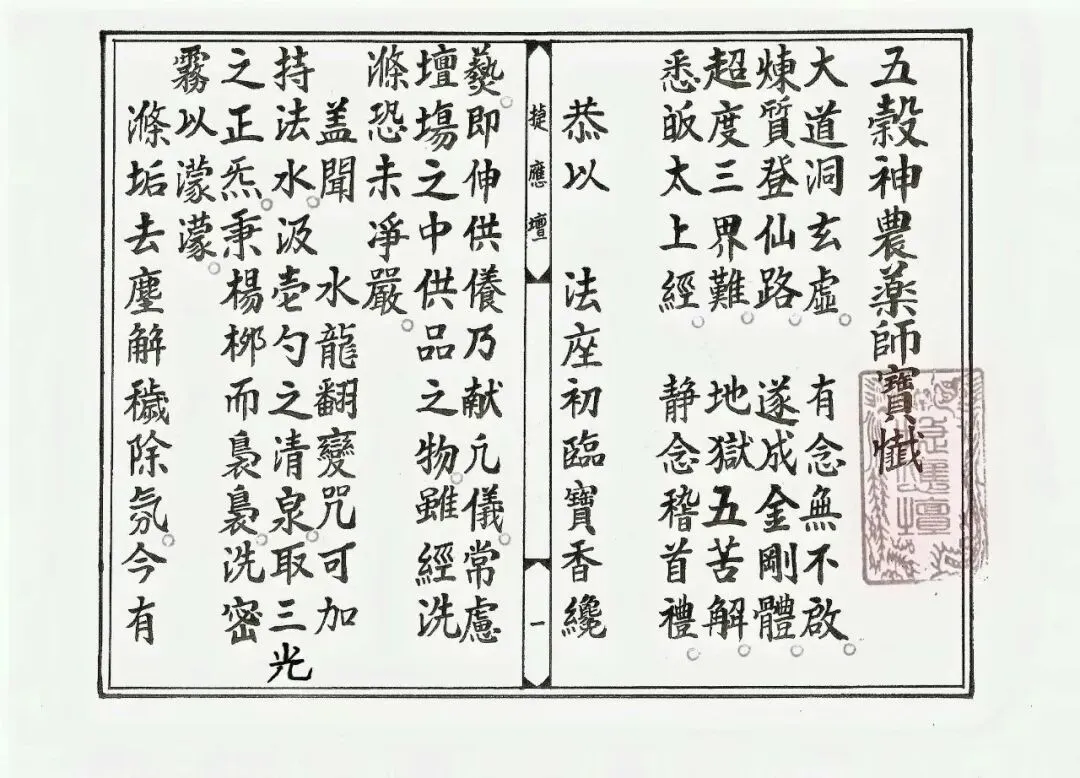 五穀神農藥師寶懺
大道洞玄虛 有念無不啟
煉質登仙路 遂成金剛體
超度三界難 地獄五苦解
悉皈太上經 静念稽首禮
恭以 法座初臨寶香纔
捷應壇
一
爇即伸供儀乃献元儀常慮
壇場之中供品之物雖經洗
滌恐未淨嚴
盖聞 水龍翻變咒可加
持法水汲壱勺之清泉取三光
之正炁秉楊栁而裊裊洗密
霧以濛濛
滌垢去塵解穢除氛今有